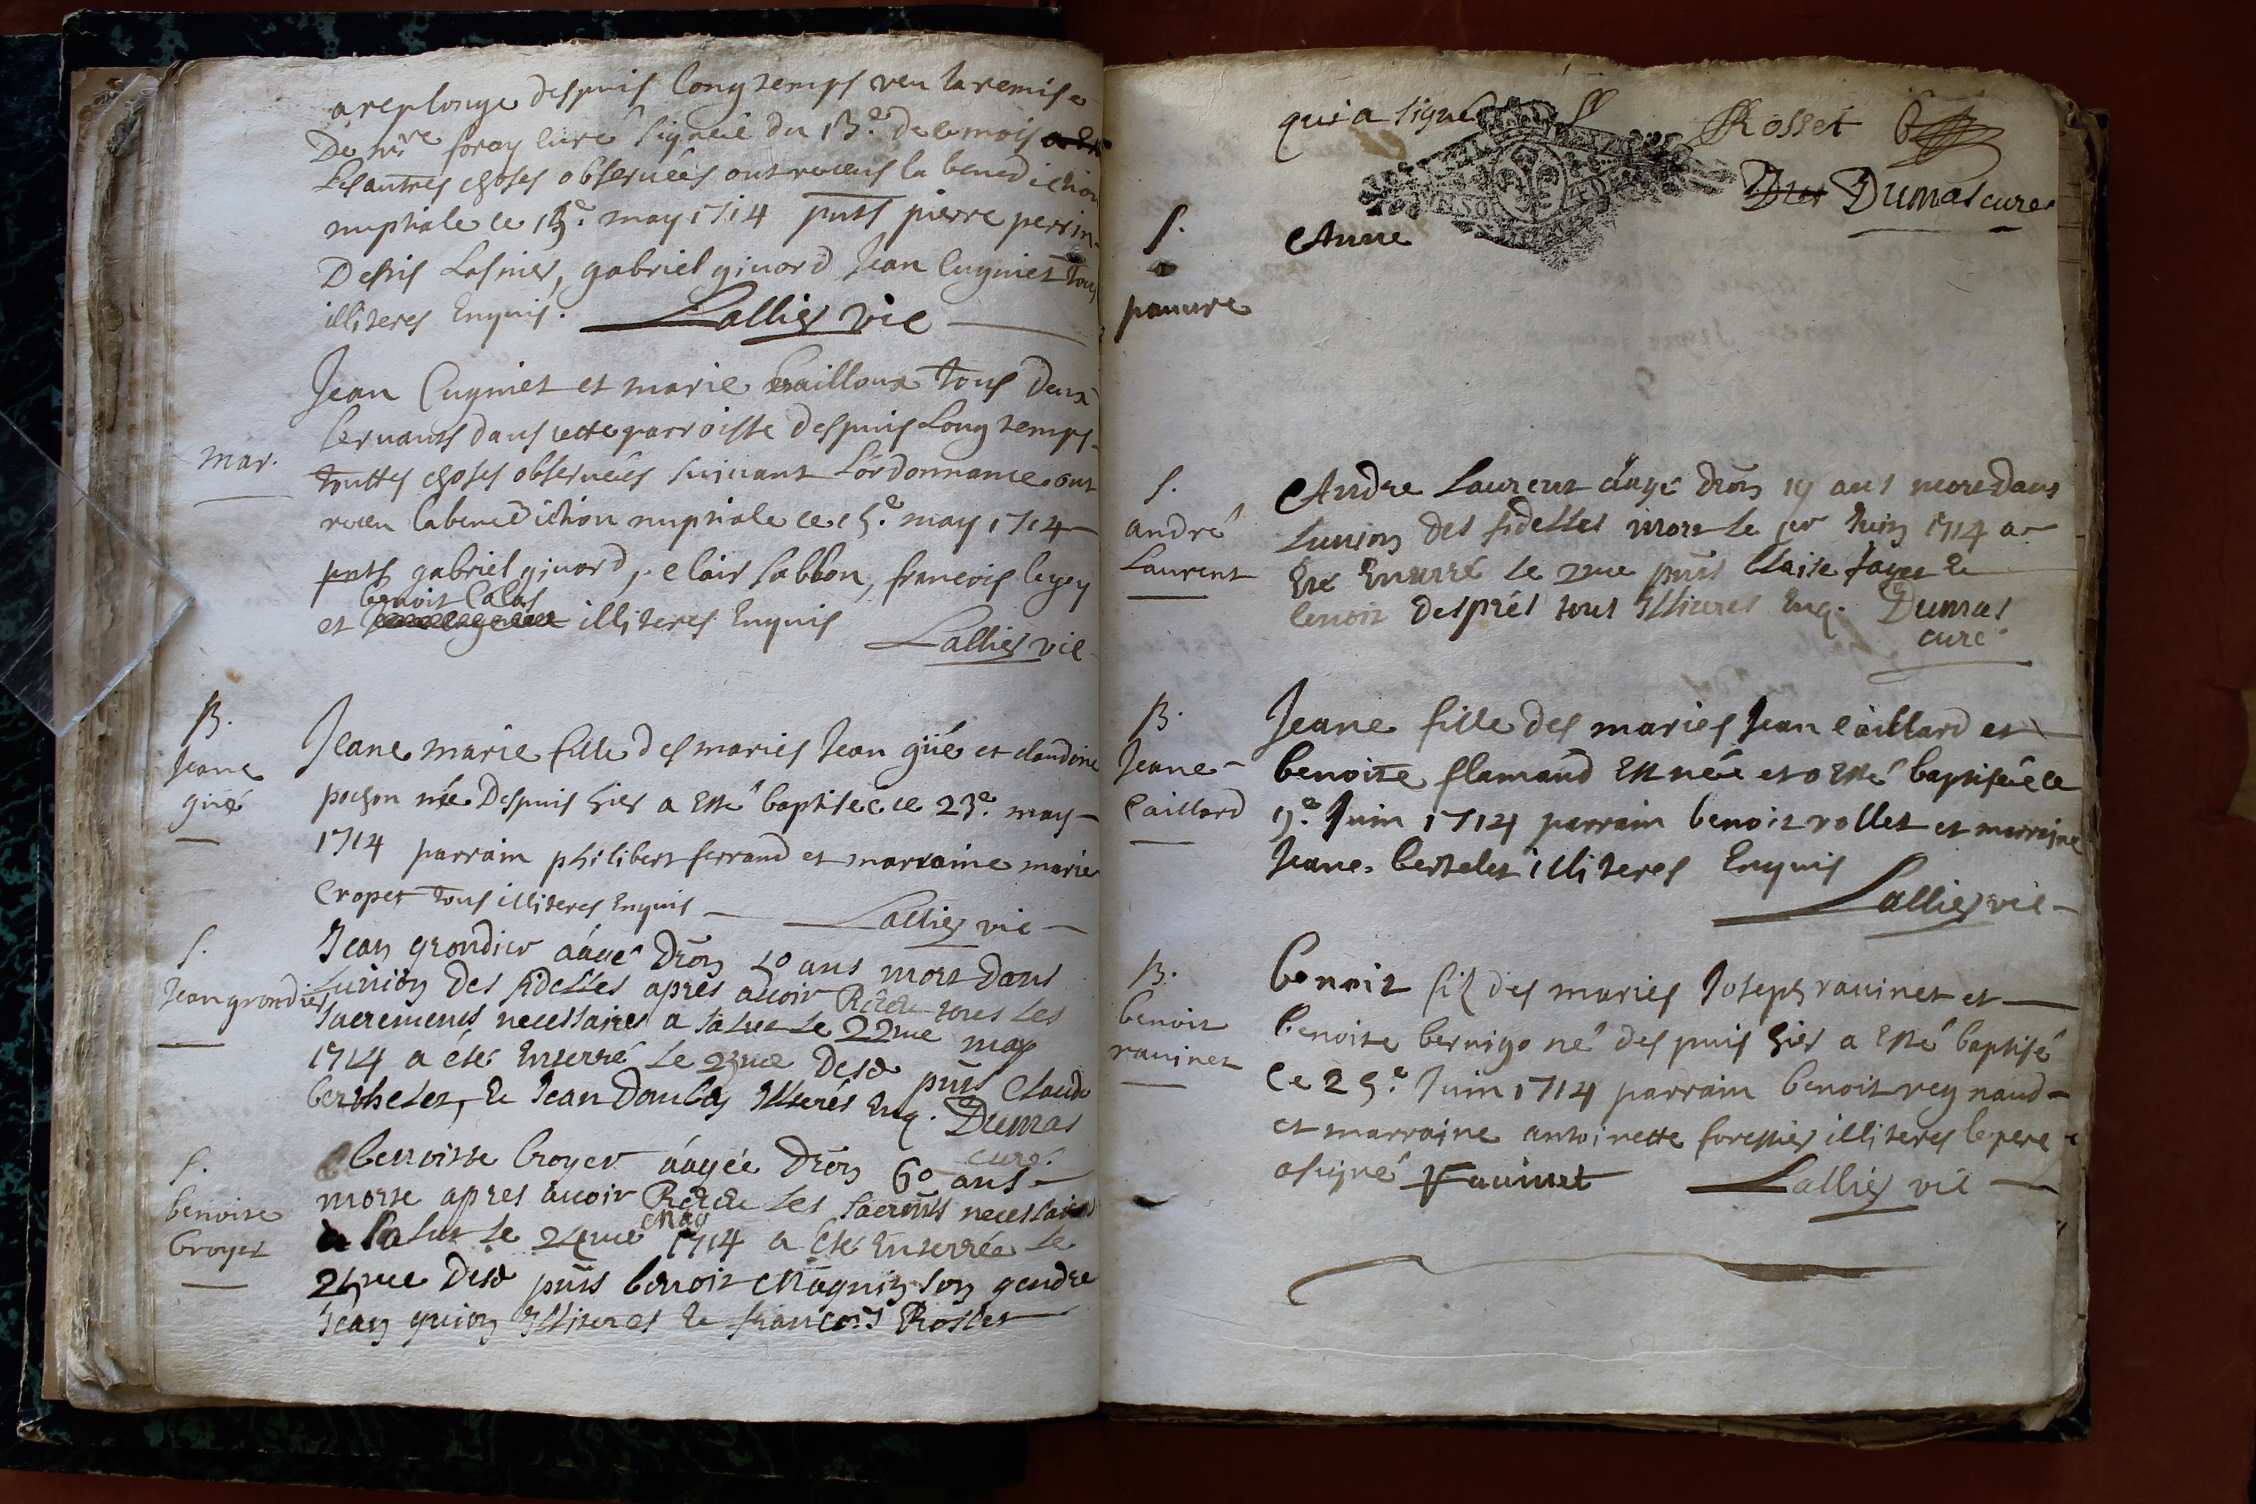 a replonge despuis longtemps veu la remise
De mre foray curé signeé du 13.e de ce mois
Les autres choses observeés ont receus la benediction
nuptiale ce 15.e may 1714 pnts pierre perrin
Denis Lasnier, gabriel givord Jean Cugniet tous
illiteres Enquis. Lallier vic
mar.
Jean Cugniet et marie bailloux tous deux
servants dans cette parroisse despuis Long temps
touttes choses observeés suivant L'ordonnance ont
receu la benediction nuptiale ce 15.e may 1714
pnts gabriel givord, clair sabbon, francois legey
benoit Calas
et illiteres Enquis Lallier vic
B.
Jeane
güé
Jeane marie fille des mariés Jean güé et claudine
pochon née Despuis hier a Esté baptiseé ce 23.e may
1714 parrain philibert ferrand et marraine marie
Cropet tous illiteres Enquis Lallier vic
S.
Jean grondier
Jean grondier áagé Dron 50 ans mort Dans
Lunion Des fidelles apres avoir Recu tous Les
sacrements necessaires a salut Le 22me may
1714 a été Enterré Le 23me Desd pnts Claude
berthelet, & Jean Doncla Illiterés Enq. Dumas
curé.
S.
benoite
broyer
benoiste broyer áagée Dron 60 ans
morte apres avoir Recu Les sacremts necessaires
May
a salut Le 24me 1714 a été Enterrée Le
25me Desd pnts benoit Magnin son gendre
Jean guion Illiteres & francois Rosset
qui a signé Rosset
Dumas curé
S.
pauvre
Anne
S.
andré
Laurent
Andre Laurent áagé Dron 19 ans mort Dans
Lunion des fidelles mort Le per Juin 1714 a
Eté Enterré Le 2me pnts Claire fayet &
benoit Desprès tous Illiteres Enq. Dumas
curé.
B.
Jeane
Caillard
Jeane fille des mariés Jean Caillard et
benoite flamand Est née et a Esté baptiseé ce
9.e Juin 1714 parrain benoit rollet et marraine
Jeane berthelet illiteres Enquis
Lallier vic
B.
benoit
ravinet
benoit fils des mariés Joseph ravinet et
benoite bernigo né despuis hier a Esté baptisé
Ce 25.e Juin 1714 parrain benoit reynaud
et marraine antoinette forestier illiteres le pere
a signé Ravinet Lallier vic